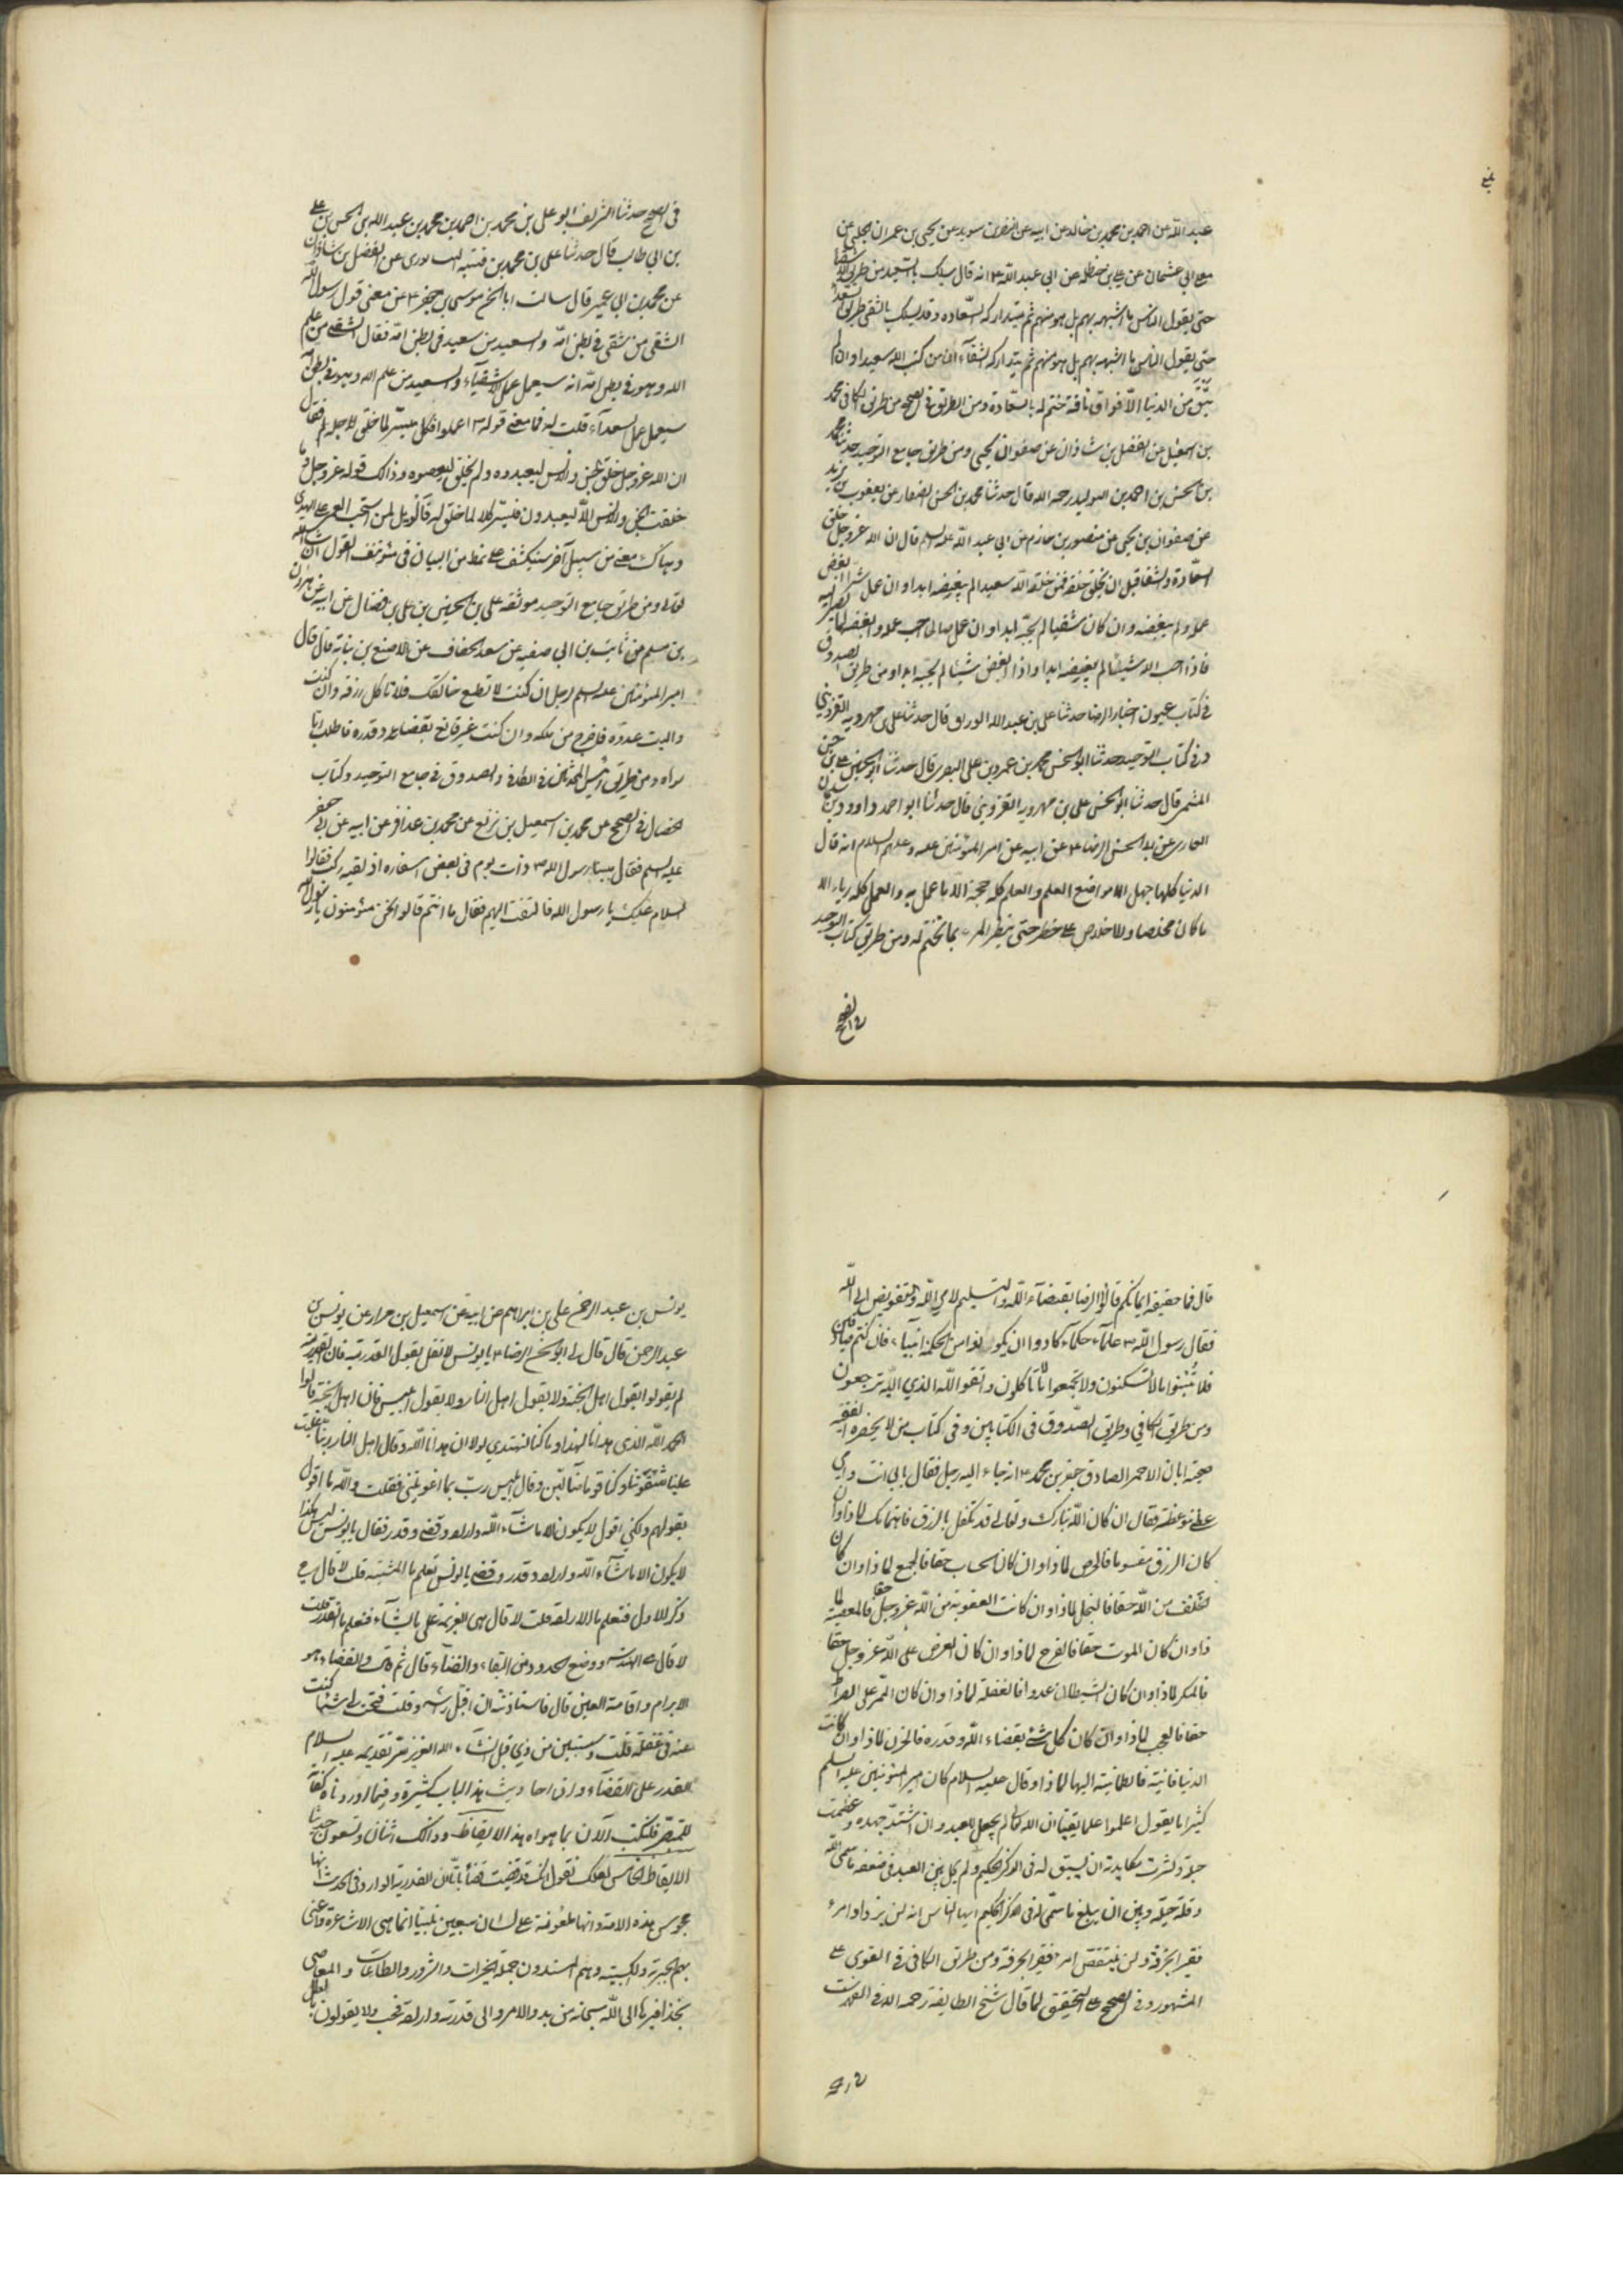 عبد الله عن احمد بن محمد بن خالد عن ابيه عن النضر بن سويد عن يحيى بن عمران الحلبي عن
معلى ابي عثمان عن علي بن حنظله عن ابي عبد الله ع انه قال يسلك بالسعيد من طريق الاشقيا
حتى يقول الناس ما اشبهه بهم بل هو منهم ثم يتداركه السعاده وقد يسلك بالشقى طريق السعدا
حتى يقول الناس ما اشبهه بهم بل هو منهم ثم يتداركه الشقآء ان من كتب الله سعيدا وان لم
يبق من الدنيا الا فواق ناقة ختم له بالسعادة ومن الطريق في الصحيح من طريق الكافي محمد
بن اسمعيل عن الفضل بن شاذان عن صفوان بن يحيى ومن طريق جامع التوحيد حدثنا محمد
بن الحسن بن احمد بن الوليد رحمه الله قال حدثنا محمد بن الحسن الصفار عن يعقوب بن يزيد
عن صفوان بن يحيى عن منصور بن حازم عن ابي عبد الله عليه السلم قال ان الله عز وجل خلق
السعادة والشقا قبل ان يخلق خلقه فمن خلقه الله سعيدا لم يبغضه ابدا وان عمل شرا ابغض
عمله ولم يبغضه وان كان شقيا لم يحبه ابدا وان عمل صالحا احب عمله وابغضه لما يصير اليه
فاذا احب الله شيئا لم يبغضه ابدا واذا ابغض شيئا لم يحبه ابدا ومن طريق الصدوق
في كتاب عيون اخبار الرضا حدثنا على بن عبد الله الوراق قال حدثنا على بن مهرويه القزويني
وفي كتاب التوحيد حدثنا ابو الحسن محمد بن عمرو بن على البصرى قال حدثنا ابو الحسين على بن حسن
المثمر قال حدثنا ابو الحسن على بن مهرويه القزويني قال حدثنا ابو احمد داوود بن سليمان
الغازى عن ابى الحسن الرضا ع عن ابيه عن امير المؤمنين عليه وعليهم السلام انه قال
الدنيا كلها جهل الا مواضع العلم والعلم كله حجة الا ما عمل به والعمل كله رياء الا
ما كان مخلصا والاخلاص على خطر حتى ينظر المرء بما يختم له ومن طريق كتاب التوحيد
في الصحيح
في الصحيح حدثنا الشريف ابو على بن محمد بن احمد بن محمد بن عبد الله بن الحسن بن على
بن ابى طالب قال حدثنا على بن محمد بن قتيبه النيسابورى عن الفضل بن شاذان
عن محمد بن ابى عمير قال سالت ابا الحسن موسى بن جعفر ع عن معنى قول رسول الله
الشقى من شقى في بطن امه والسعيد من سعيد في بطن امه فقال الشقى من علم
الله وهو في بطن امه انه سيعمل عمل الاشقيآء والسعيد من علم الله وهو في بطن امه
سيعمل عمل السعدآء قلت له فما معنى قوله ص اعملوا فكل ميسر لما خلق لاجله فقال
ان الله عز وجل خلق الجن والانس ليعبدوه ولم يخلق ليعصوه وذالك قوله عز وجل وما
خلقت الجن والانس الا ليعبدون فيسر كلا لما خلق له فالويل لمن استحب العمى على الهدى
وهناك معنى من سبيل آخر سينكشف على نمط من البيان في مستونف القول ان شاء الله
تعالى ومن طريق جامع التوحيد موثقه على بن الحسين بن على بن فضال عن ابيه عن هرون
بن مسلم عن ثابت بن ابى صفيه عن سعد الخفاف عن الاصبغ بن نباته قال قال
امير المؤمنين عليه السلم لرجل ان كنت لا تطيع خالقك فلا تاكل رزقه وان كنت
واليت عدوه فاخرج من ملكه وان كنت غير قانع بقضائه وقدره فاطلب ربا
سواه ومن طريق رئيس المحدثين في الكافي والصدوق في جامع التوحيد وكتاب
الخصال في الصحيح عن محمد بن اسمعيل بن بزيع عن محمد بن عذافر عن ابيه عن ابى جعفر
عليه السلم فقال بينا رسول الله ص ذات يوم في بعض اسفاره اذ لقيه ركب فقالوا
السلام عليك يا رسول الله فالتفت اليهم فقال ما انتم قالوا نحن مؤمنون يا رسول الله
قال فما حقيقه ايمانكم قالوا الرضا بقضآء الله والتسليم لامر الله والتفويض الى الله
فقال رسول الله ص علمآء حكمآء كادوا ان يكونوا من الحكمة انبيآء فان كنتم صادقين
فلا تبنوا ما لا تسكنون ولا تجمعوا ما لا تاكلون واتقوا الله الذي اليه ترجعون
ومن طريق الكافي وطريق الصدوق في الكتابين وفي كتاب من لا يحضره الفقيه
صحيحة ابان الاحمر الصادق جعفر بن محمد ع انه جاء اليه رجل فقال بابى انت وامى
عظنى موعظة فقال ان كان الله تبارك وتعالى قد تكفل بالرزق فاهتمامك لماذا وان
كان الرزق مقسوما فالحرص لماذا وان كان الحساب حقا فالجمع لماذا وان كان
الخلف من الله حقا فالبخل لماذا وان كانت العقوبة من الله عز وجل حقا فالمعصية لما
ذا وان كان الموت حقا فالفرح لماذا وان كان العرض على الله عز وجل حقا
فالمكر لماذا وان كان الشيطان عدوا فالغفلة لماذا وان كان الممر على الصراط
حقا فالعجب لماذا وان كان كل شئ بقضاء الله وقدره فالحزن لماذا وان كانت
الدنيا فانية فالطمانينة اليها لماذا وقال عليه السلام كان امير المؤمنين عليه السلم
كثيرا ما يقول اعلموا علما يقينا ان الله تعالى لم يجعل للعبد وان اشتد جهده وعظمت
حيلته وكثرت مكايدته ان يسبق له في الذكر الحكيم ولم يحل بين العبد في ضعفه ما سمى الله
وقلة حيلته وبين ان يبلغ ما سمى له في الذكر الحكيم ايها الناس انه لن يزداد امرء
نقيرا بحذقه ولن ينتقص امرء نقيرا لخرقه ومن طريق الكافي في القوى على
المشهور وفي الصحيح على التحقيق لما قال شيخ الطايفة رحمه الله في الفهرست
يونس بن عبد الرحمن على بن ابراهيم عن ابيه عن اسمعيل بن مرار عن يونس بن
عبد الرحمن قال قال لى ابو الحسن الرضا ع يا يونس لا تقل بقول القدريه فان القدرية
لم يقولوا بقول اهل الجنة ولا بقول اهل النار ولا بقول ابليس فان اهل الجنة قالوا
الحمد لله الذى هدانا لهذا وما كنا لنهتدي لولا ان هدانا الله وقال اهل النار ربنا غلبت
علينا شقوتنا وكنا قوما ضآلين وقال ابليس رب بما اغويتنى فقلت والله ما اقول
بقولهم ولكنى اقول لا يكون الا ما شآء الله واراد وقضى وقدر فقال يا يونس ليس هكذا
لا يكون الا ما شآء الله واراد وقدر وقضى يا يونس تعلم ما المشية قلت لا قال هى
ذكر الاول فتعلم ما الارادة قلت لا قال هى العزيمة على ما يشآء فتعلم ما القدر قلت
لا قال هى الهندسه ووضع الحدود من البقاء والفنآء قال ثم قال والقضاء هو
الابرام واقامة العين قال فاستاذنته ان اقبل راسه وقلت فتحت لى شيئا كنت
عنه في غفلة قلت وستبين من ذي قبل انشاء الله العزيز سر تقديمه عليه السلام
القدر على القضآء وان احاديث هذا الباب كثيرة وفيما اوردناه كفاية
للمتبصر فلنكتف الآن بما هواه هذا الايقاظ وذالك اثنان وتسعون حديثا
الايقاظ الخامس لعلك تقول انك قد قضيت قضآء باتا ان القدرية الوارد في الحديث انها
مجوس هذه الامة وانها ملعونة على لسان سبعين نبيا انما هى الاشاعرة واعنى
بهم الجبرية والكسبية وهم المسندون جملة الخيرات والشرور والطاعات والمعاصى
بحذافيرها الى الله سبحانه من بدو الامر والى قدرته وارادته فحسب ولا يقولون بالعلل